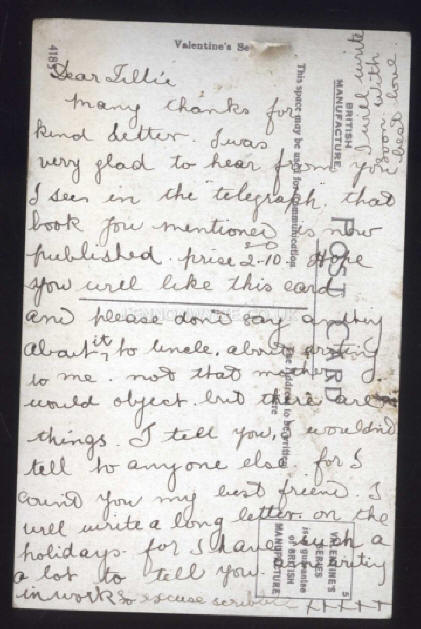 Dear Tillie
Many thanks for
kind letter. I was
very glad to hear from you
I seen in the telegraph. that
book you mentioned is now
published. prise 2-10. Hope
you will like this card
and please don't say anything
about it, to Uncle, about writing
to me. not that mother
would object. but there are
things. I tell you, I wouldn't
tell to anyone else. for I
count you my best friend. I
will write a long letter. on the
holidays. for I have such a
a lot to tell you. writing
in work so excuse scribble ++++
I will write
soon. with
best love.
Valentine's Se
4189
POST CARD
BRITISH
MANUFACTURE
This space may be used for communication
The Address to be written
here
VALENTINE'S
SERIES
is a guarantee
of BRITISH
MANUFACTURE
5